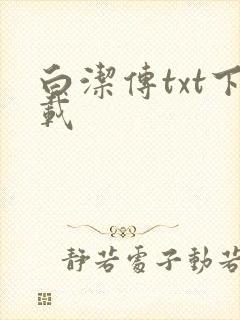 白潔傳txt下
載
靜若處子動若